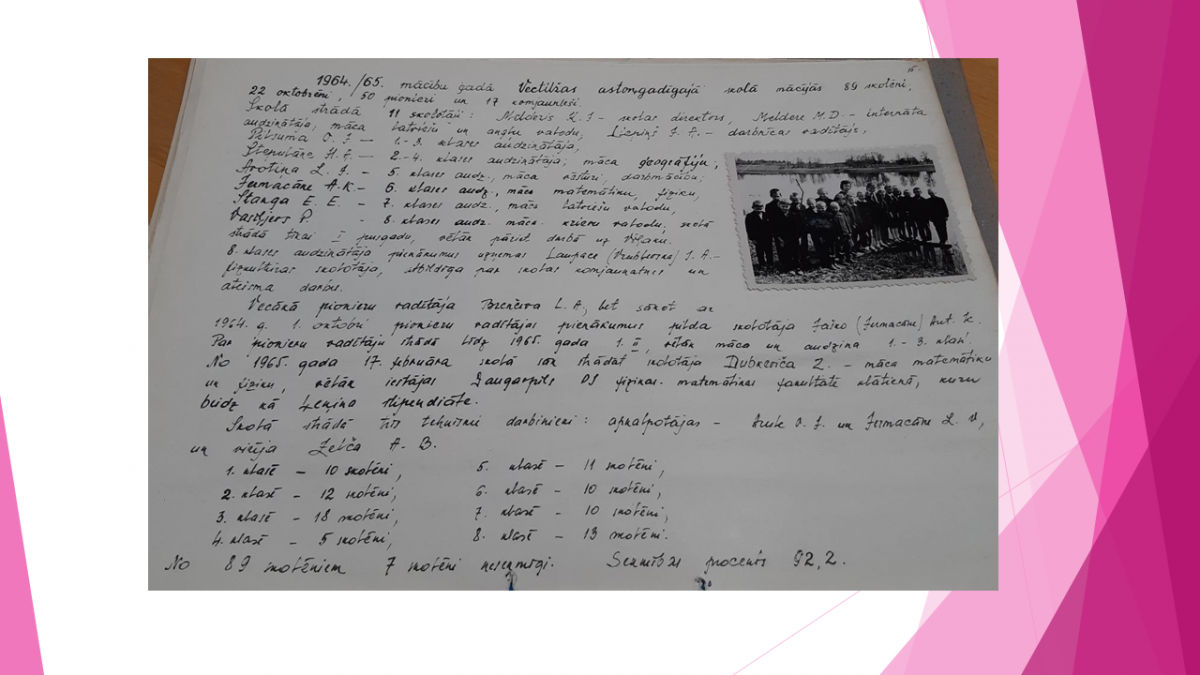 1964./65. mācību gadā Vectilžas astongadīgajā skolā mācījās 89 skolēni,
22 oktobrēni, 50 pionieri un 17 komjaunieši.
Skolā strādā 11 skolotāji: Melderis K. J. - skolas direktors, Meldere M.D. - internāta
audzinātāja, māca latviešu un angļu valodu, Lieniņš J. A. - darbnīcas vadītājs,
Pitsuma O. J. - 1.-3. klases audzinātāja,
H. A. - 2.-4. klases audzinātāja; māca ģeogrāfiju,
L. J. - 5. klases audz., māca vēsturi, darbmācību,
Jermacāne A.K. - 6. klases audz., māca matemātiku, fiziku,
Stanga E. E. - 7. klases audz., māca latviešu valodu,
P. - 8. klases audz. māca krievu valodu, skolā
strādā tikai I pusgadu, vēlāk pāriet darbā uz Viļaku.
8. klases audzinātāja pienākumus uzņemas Laupace J. A. -
fizkultūras skolotāja, atbildīga par skolas komjaunatnes un
ateisma darbu.
Vecākā pionieru vadītāja L. A., bet sākot ar
1964. g. 1. oktobri pionieru vadītājas pienākumus pilda skolotāja Zaiko (Jermacāne) Ant. K.
Par pionieru vadītāju strādā līdz 1965. gada 1. II, vēlāk māca un audzina 1.-3. klasi.
No 1965. gada 17. februāra skolā sāk strādāt skolotāja Dubkeviča Z. - māca matemātiku
un fiziku, vēlāk iestājas Daugavpils PI fizikas-matemātikas fakultātē klātienē, kuru
beidz kā Ļeņina stipendiāte.
Skolā strādā trīs tehniskie darbinieki: apkalpotājas - O. J. un Jermacāne L. V,
un vīrija Zelča A. B.
1. klasē - 10 skolēni, 5. klasē - 11 skolēni,
2. klasē - 12 skolēni, 6. klasē - 10 skolēni,
3. klasē - 18 skolēni, 7. klasē - 10 skolēni,
4. klasē - 5 skolēni, 8. klasē - 13 skolēni.
No 89 skolēniem 7 skolēni nesekmīgi. Sekmības procents 92,2.